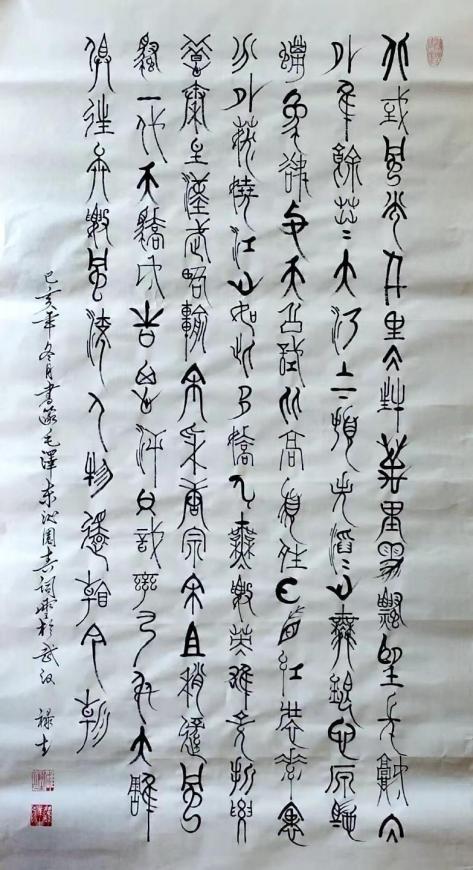 北國風光千里冰封萬里雪飄望長城內
外惟餘莽=大河上下頓失滔=山舞銀蛇原馳
蠟象欲與天公試比高須晴日看紅裝素裹
分外妖嬈江山如此多嬌引無數英雄競折腰
惜秦皇漢武略輸文采唐宗宋祖稍遜風
騷一代天驕成吉思汗只識彎弓射大雕
俱往矣數風流人物還看今朝
己亥年冬月書錄毛澤東沁園春詞雪於武汉 禄